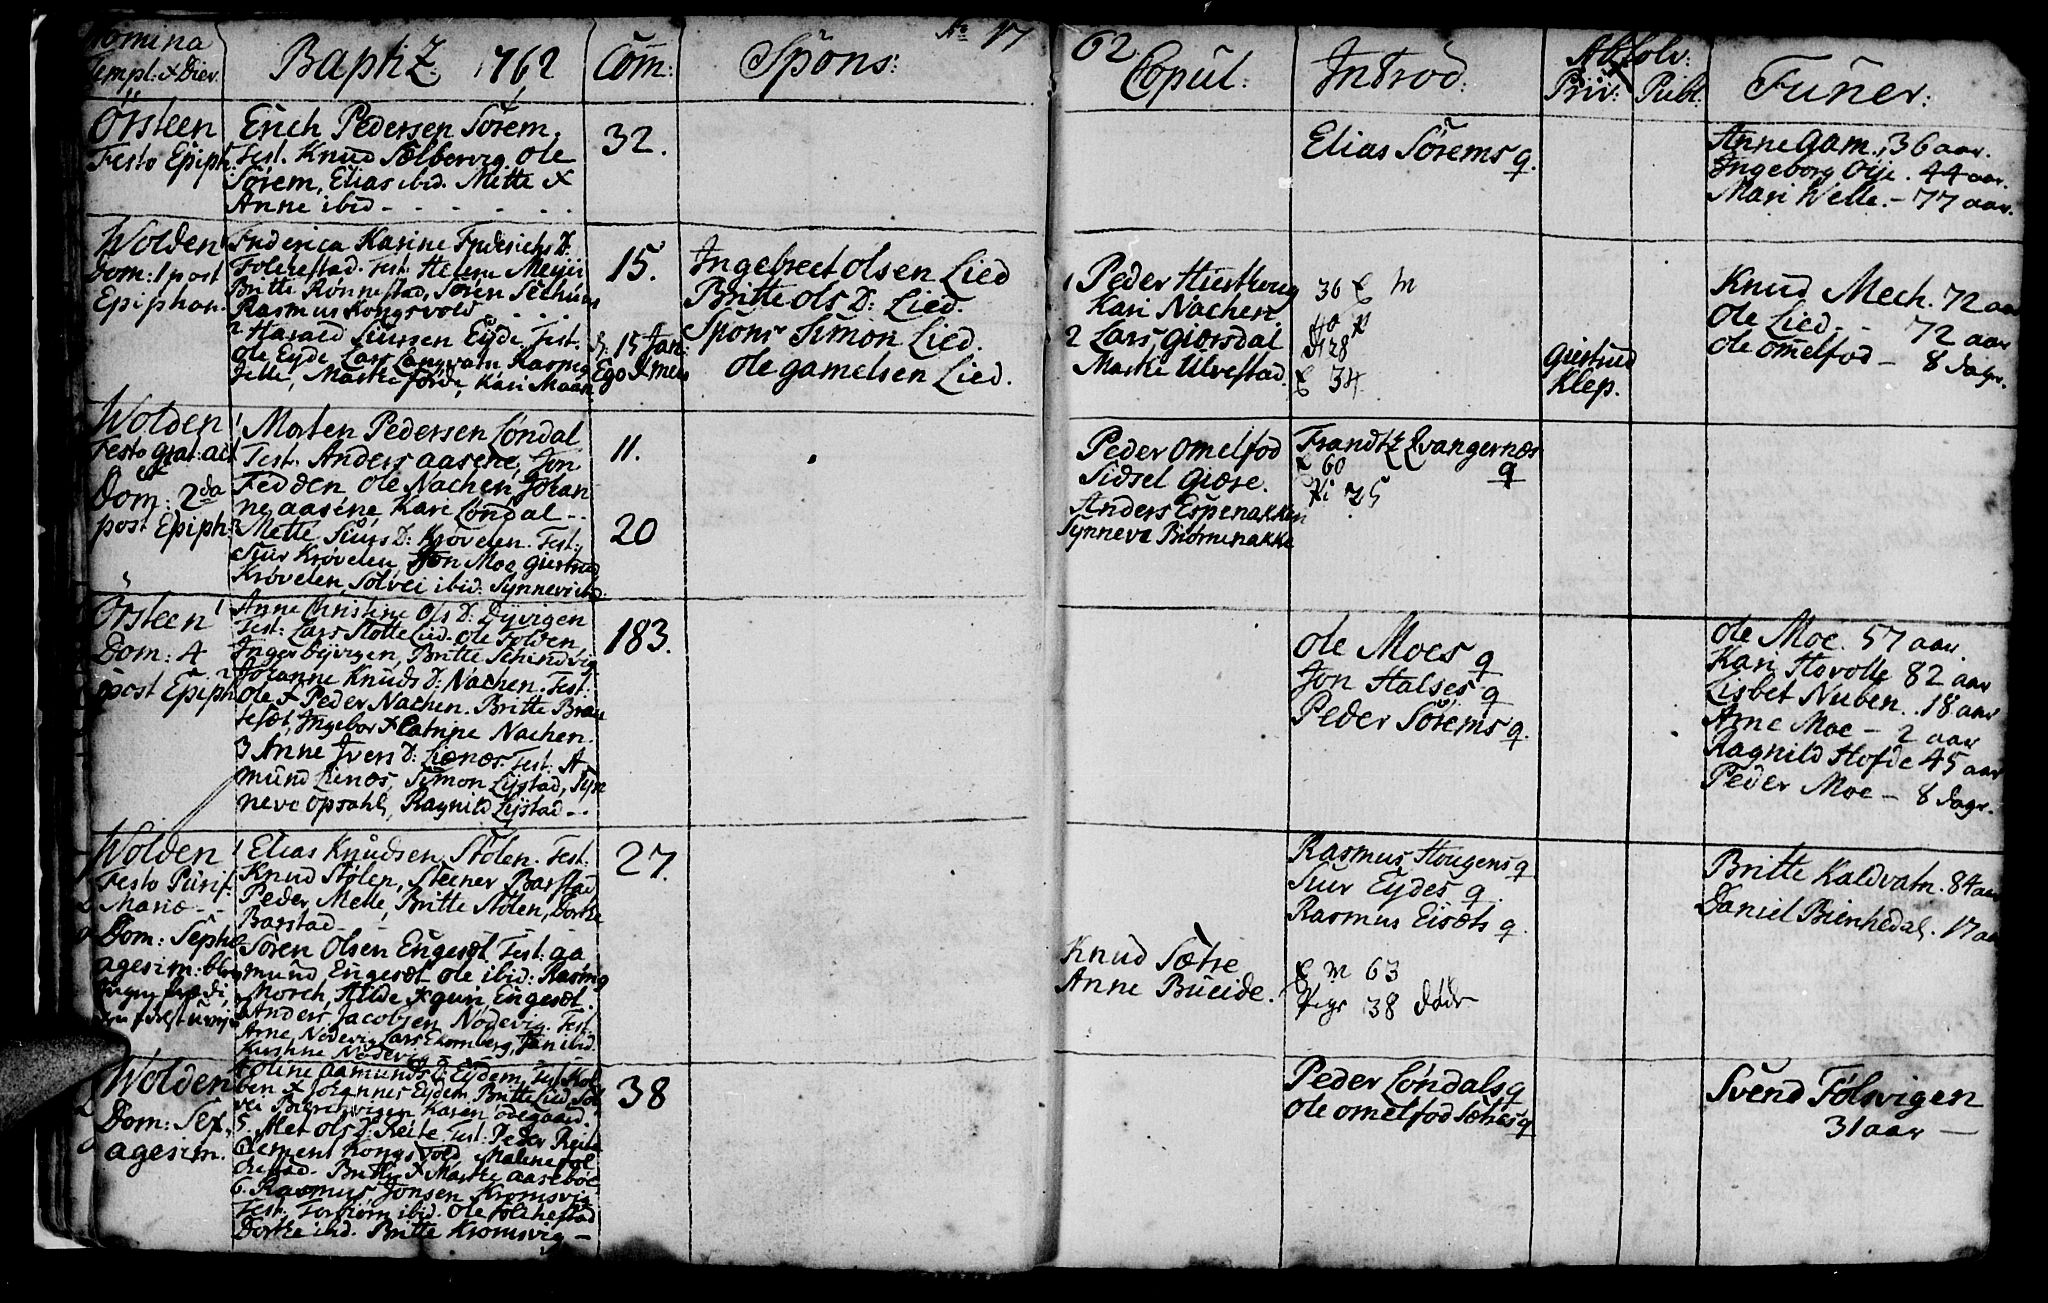 Nomina
Templ: & Dier.
Baptiz. 1762
Com:
Spons:
No 17
62
Copul:
Introd:
Absolv:
Priv: Publ:
Funer:
Örsteen
Festo Epiph:
Erich Pedersen Sörem.
Test. Knud Sælbervig. Ole
Sörem, Elias ibid. Mette &
Anne ibid
32.
Elias Sörems q.
Anne Gam. 36 aar.
Ingeborg Öye. 44 aar.
Mari Welle. 77 aar.
Wolden
Dom: 1 post
Epiphan.
Friderica Karine Friderichs D:
Folchestad. Test. Helene Meyer
Britte Rönnestad, Sören
Rasmus Kongsvold
2 Harald Siursen Eyde. Test.
Ole Eyde, Lars Langvatn, Rasmus
Velle, Marthe Förde, Kari Moan
15.
15 Jan:
Ego & mei
Ingebrect Olsen Lied
Britte Ols D: Lied.
Spons Simon Lied.
Ole Gamelsen Lied.
1 Peder Hiertberg
Kari Nachen
2 Lars Giörsdal
Marthe Ulvestad.
36 E m
40 P
D 28
E 34
Giertrud
Klep.
Knud Mech. 72 aar
Ole Lied - 72 aar
Ole Omelfod - 8 dage.
Wolden
Festo grat: act
et
Dom: 2da
post Epiph:
1 Morten Pedersen Löndal
Test. Anders Aasene, Jon
Fedden Ole Nachen, Johan
ne Aasene Kari Löndal
2 Mette Siurs D: Krövelen. Test.
Siur Krövelen, Jon Moe, Giertrud
Krövelen, Solvei ibid. Synnevi ibid
11.
20
Peder Omelfod
Sidsel Giære.
Anders Espenakken
Synneva Biörnenakke
Frandtz Qvangernæs
q
E 60
Pi 25
Örsteen
Dom: 4
post Epiph
1 Anne Christine Ols D: Dyvigen
Test: Lars Slotte Lied. Ole Folden,
Inger Dyvigen, Britte
2 Johanne Knuds D: Nachen. Test:
Ole & Peder Nachen. Britte Brau
teset, Ingebor & Catrine Nachen.
3 Anne Ivers D: Lienæs. Test: A
mund Lienæs, Simon Lystad, Syn
neve Opsahl, Ragnild Lystad
183.
Ole Moes q
Jon Halses q
Peder Sörems q.
Ole Moe. 57 aar.
Kari Hovolle 82 aar
Lisbet Nuben. 18 aar
Arne Moe - 2 aar
Ragnild Hofde 45 aar
Peder Moe - 8 dage.
Wolden
Festo Purif.
Mariæ
Dom: Septu
agesim:
1 Elias Knudsen Stölen. Test.
Knud Stölen, Steener Barstad
Peder Melle, Britte Stölen, Dorthe
Barstad
2 Sören Olsen Engeset. Test: Aa
mund Engeset Ole ibid: Rasmus
Morch, Hilde & Guri Engeset.
Anders Jacobsen Nödevig. Test.
Arne Nödevig, Lars Skomberg, Jan ibid.
Kirstine Nödevig
27.
Knud Sætre
Anne Bueide.
Rasmus Hougens q
Siur Eydes q.
Rasmus Eisets q.
E m 63
Pige 38 döde
Britte Kaldvatn. 84 aar
Daniel Bienhedal. 17 aar
Wolden
Dom: Sex
agesim.
Oline Aamunds D: Eydem. Test. Kol
ben & Johannes Eydem. Britte Lied, Sol
vei Bierchevigen Karen Ödegaard.
5. Met Ols D: Reite. Test. Peder Reite
Clement Kongsvold Malene Fol
chestad. Britte & Marthe Aaseböe
6. Rasmus Jonsen Kromsvig
Test. Torbiörn ibid. Ole Folchestad
Dorthe ibid. Britte Kromsvig
38
Peder Löndals q
Ole Omelfod Sætres q
Svend Fölsvigen
31 aar